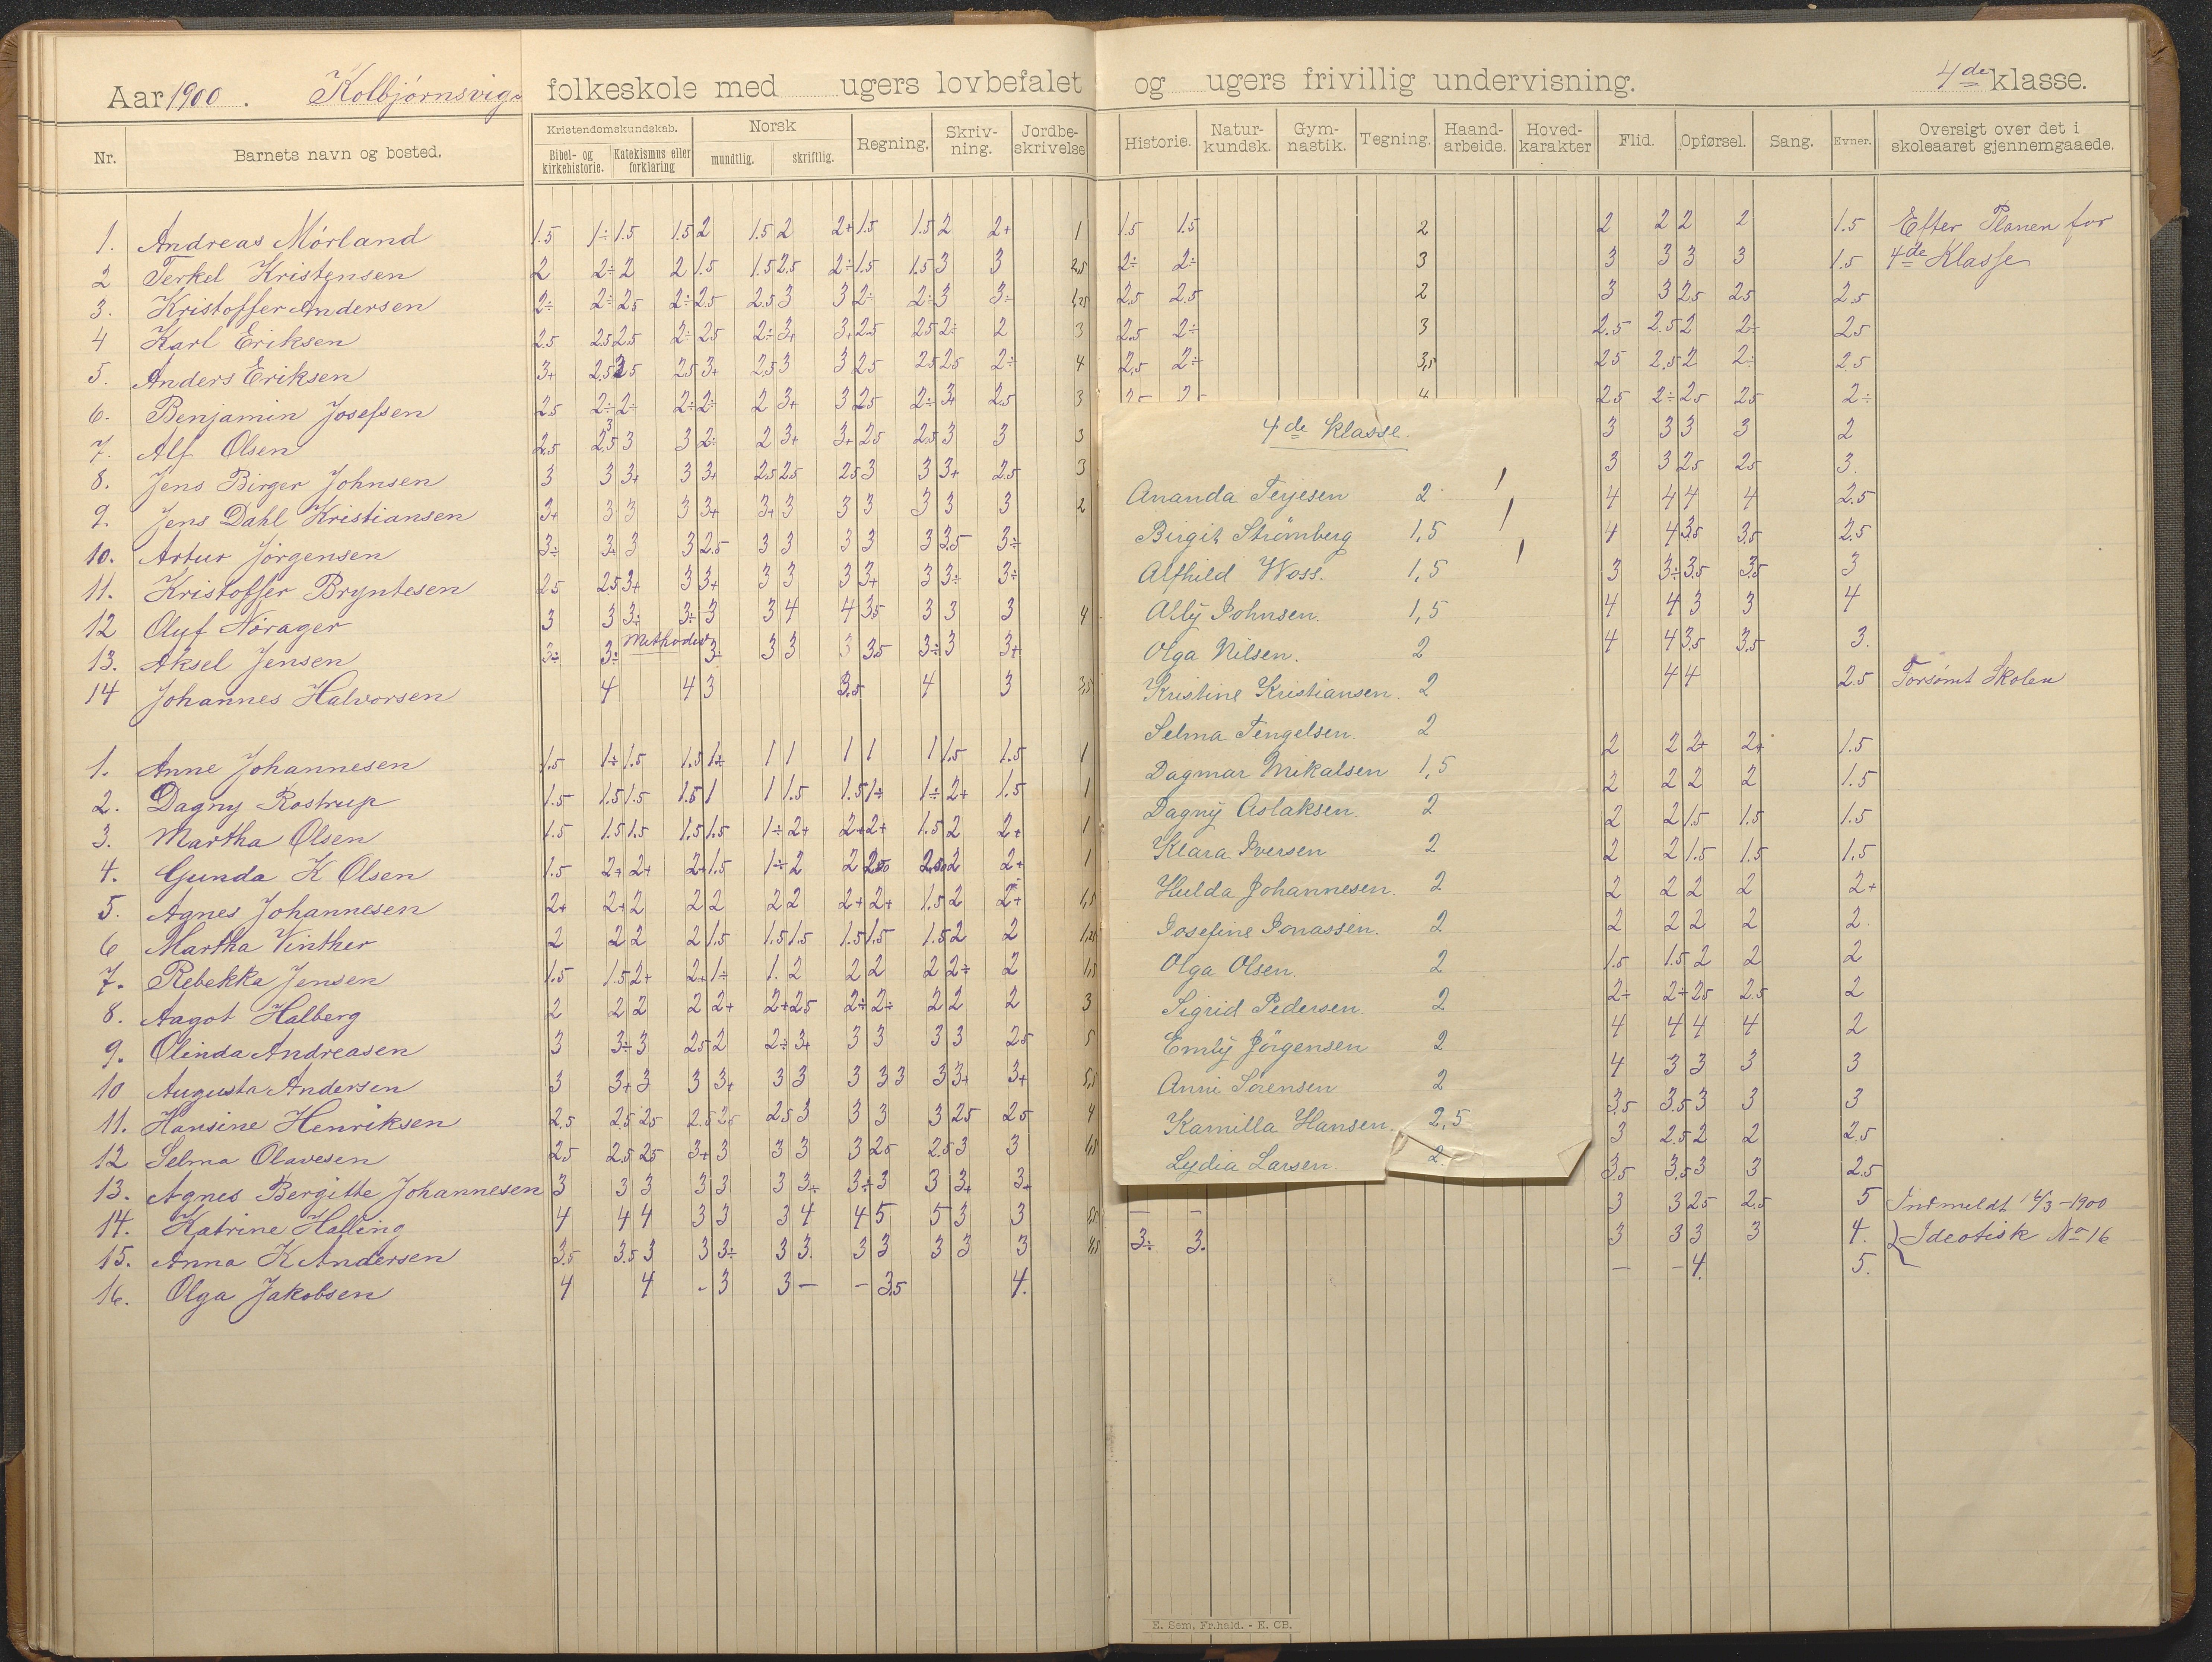 Aar 1900. Kolbjørnsvigs folkeskole med ugers lovbefalet og ugers frivillig undervisning. 4de klasse.
Nr. Barnets navn og bosted. Kristendomskundskab. Bibel- og kirkehistorie. Katekismus eller forklaring Norsk mundtlig. skriftlig. Regning. Skriv-ning. Jordbe-skrivelse Historie. Natur-kundsk. Gym-nastik. Tegning. Haand-arbeide. Hoved-karakter Flid. Opførsel. Sang. Evner. Oversigt over det i skoleaaret gjennemgaaede.
1. Andreas Mørland 1.5 1÷ 1.5 1.5 2 1.5 2 2+ 1.5 1.5 2 2+ 1 1.5 1.5 2 2 2 2 2 1.5 Efter Planen for
2 Terkel Kristensen 2 2÷ 2 2 1.5 1.5 2.5 2÷ 1.5 1.5 3 3 2,5 2÷ 2÷ 3 3 3 3 3 1.5 4de Klasse
3. Kristoffer Andersen 2÷ 2÷ 2.5 2÷ 2.5 2.5 3 3 2÷ 2÷ 3 3÷ 2.5 2.5 2 3 3 2.5 2.5 2.5
4 Karl Eriksen 2.5 2.5 2.5 2÷ 2.5 2÷ 3+ 3+ 2.5 2.5 2÷ 2 3 2.5 2÷ 3 2.5 2.5 2 2÷ 2.5
5. Anders Eriksen 3+ 2.5 2.5 2.5 3+ 2.5 3 3 2.5 2.5 2.5 2÷ 4 2,5 2÷ 3,5 2.5 2.5 2 2÷ 2.5
6. Benjamin Josefsen 2.5 2÷ 2÷ 2÷ 2÷ 2 3+ 3 2.5 2÷ 3+ 2.5 3 2.5 2÷ 2.5 2.5 2÷
7. Alf Olsen 2.5 2.5 3 3 2÷ 2 3+ 3+ 2.5 2.5 3 3 3 3 3 3 3 2
8. Jens Birger Johnsen 3 3 3+ 3 3+ 2.5 2.5 2.5 3 3 3+ 2.5 3 3 3 2.5 2.5 3.
9. Jens Dahl Kristiansen 3+ 3 3 3 3+ 3+ 3 3 3 3 3 3 2 4 4 4 4 2.5
10. Artur Jørgensen 3÷ 3+ 3 3 2.5 3 3 3 3 3 3.5 3÷ 4 4 3.5 3.5 2.5
11. Kristoffer Bryntesen 2.5 2.5 3+ 3 3+ 3 3 3 3+ 3 3÷ 3÷ 3 3÷ 3.5 3.5 3
12 Oluf Nørager 3 3 3÷ 3÷ 3 3 4 4 3.5 3 3 3 4 4 4 3 3 4
13. Aksel Jensen 3÷ 3÷ Methodist 3÷ 3 3 3 3.5 3÷ 3 3+ 4 4 3.5 3.5 3.
14 Johannes Halvorsen 4 4 3 3.5 4 3 3,5 4 4 2.5 Forsømt Skolen
1. Anne Johannesen 1.5 1÷ 1.5 1.5 1÷ 1 1 1 1 1 1.5 1.5 1 2 2 2+ 2+ 1.5
2. Dagny Rostrup 1.5 1.5 1.5 1.5 1 1 1.5 1.5 1÷ 1÷ 2+ 1.5 1 2 2 2 2 1.5
3. Martha Olsen 1.5 1.5 1.5 1.5 1.5 1÷ 2+ 2+ 2+ 1.5 2 2+ 1 2 2 1.5 1.5 1.5
4. Gunda K Olsen 1.5 2+ 2+ 2+ 1.5 1÷ 2 2 2 2 2+ 1 2 2 1.5 1.5 1.5
5. Agnes Johannesen 2+ 2+ 2 2 2 2 2 2+ 2+ 1.5 2 2+ 1,5 2 2 2 2 2+
6 Martha Vinther 2 2 2 2 1.5 1.5 1.5 1.5 1.5 1.5 2 2 1,25 2 2 2 2 2.
7. Rebekka Jensen 1.5 1.5 2+ 2+ 1÷ 1. 2 2 2 2 2÷ 2 1,5 1.5 1.5 2 2 2
8. Aagot Halberg 2 2 2 2 2+ 2+ 2.5 2÷ 2÷ 2 2 2 3 2÷ 2÷ 2.5 2.5 2
9. Olinda Andreasen 3 3÷ 3 2.5 2 2÷ 3+ 3 3 3 3 2.5 5 4 4 4 4 2
10 Augusta Andersen 3 3+ 3 3 3+ 3 3 3 3 3 3 3+ 3+ 5,5 4 3 3 3 3
11. Hansine Henriksen 2.5 2.5 2.5 2.5 2.5 2.5 3 3 3 3 2.5 2.5 4 3.5 3.5 3 3 3
12 Selma Olavesen 2.5 2.5 2.5 3+ 3 3 3 3 2.5 2.5 3 3 1,5 3 2.5 2 2 2.5
13. Agnes Bergitte Johannesen 3 3 3 3 3 3 3÷ 3÷ 3 3 3+ 3+ 3.5 3.5 3 3 2.5
14. Katrine Halling 4 4 4 3 3 3 4 4 5 5 3 3 — — 3 3 2.5 2.5 5 Indmeldt 12/3-1900
15. Anna K Andersen 3.5 3.5 3 3 3÷ 3 3. 3 3 3 3 3 3÷ 3. 3 3 3 3 4. Ideotisk No 16
16. Olga Jakobsen 4 4 - 3 3 — — 3.5 4. — — 4. 5.
4de klasse.
Ananda Terjesen 2
Birgit Strömberg 1,5
Alfhild Woss. 1,5
Ally Johnsen. 1,5
Olga Nilsen. 2
Kristine Kristiansen. 2
Selma Tengelsen. 2
Dagmar Mikalsen 1,5
Dagny Aslaksen. 2
Klara Iversen 2
Hulda Johannesen. 2
Josefine Jonassen. 2
Olga Olsen. 2
Sigrid Pedersen. 2
Emly Jörgensen 2
Anni Sörensen 2
Kamilla Hansen. 2,5
Lydia Larsen. 2.
E. Sem, Fr.hald. - E. CB.